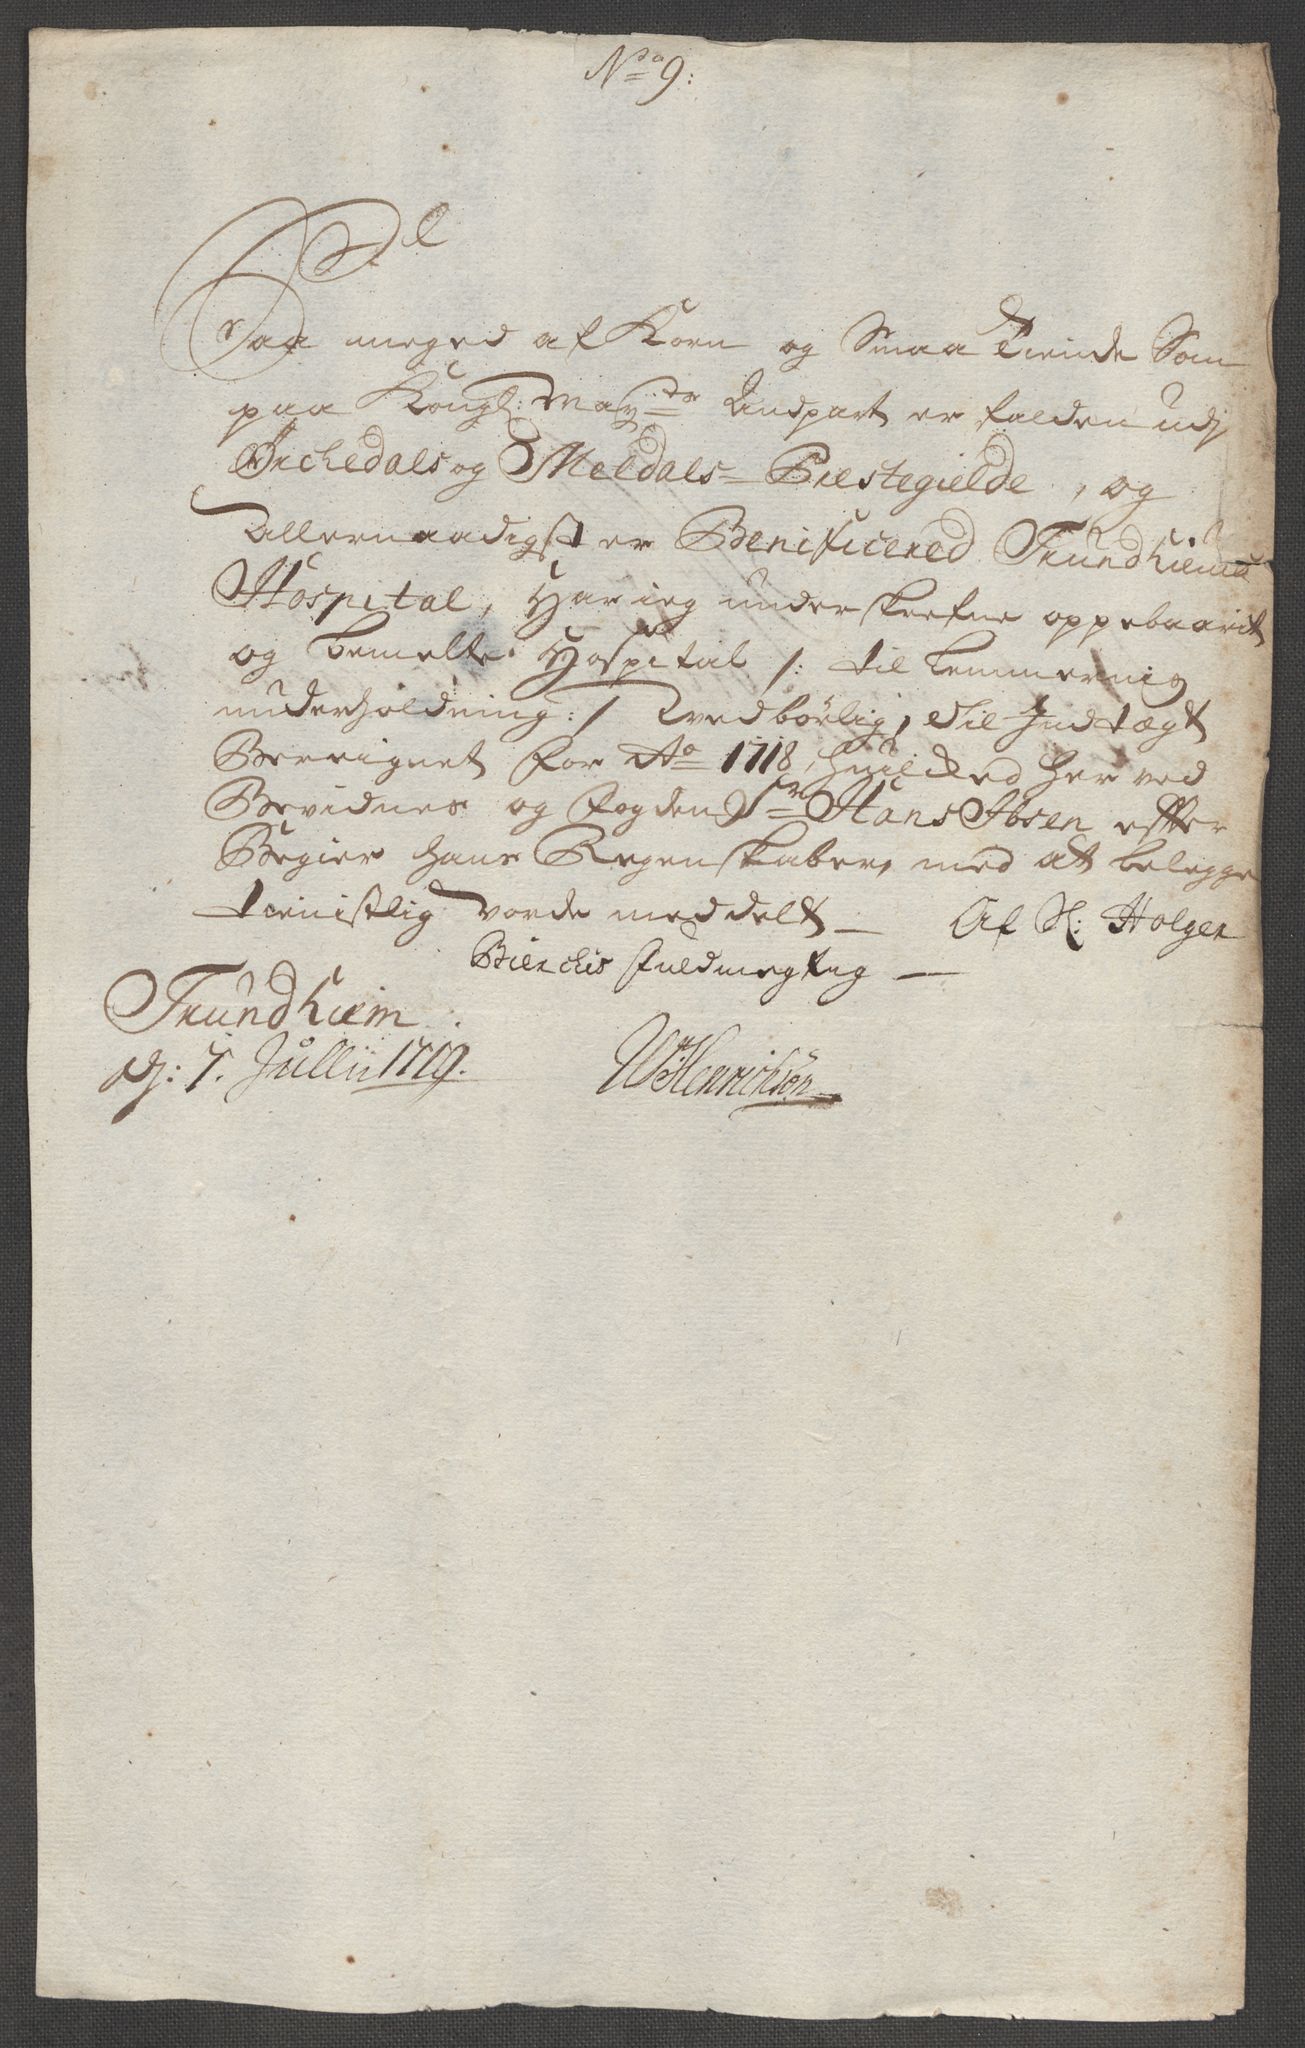 No 9:
Saa meged af Korn og Smaa Tiende Som
paa Kongl: May:ts Andpart er falden udj
Orchedals og Meldals= Præstegielde, og
Allernaadigst er Benificered Trundhiems
Hospital, Har ieg underskrefne oppebaarit
og bemelte Hospital /: til Lemmernis
underholdning :/ tilbørlig, til Indtægt
Berregnet for Ao 1718, huilcked her ved
Bevidnes og fogden Sr Hans Ibsen effter
Begier hans Regenskaber, med at belegge
tienistlig vorde meddelt — Af Sl: Holger
Bierchis fuldmegtig —
Trundhiem
dj: 7. Jullii 1719.
WHenrichsøn